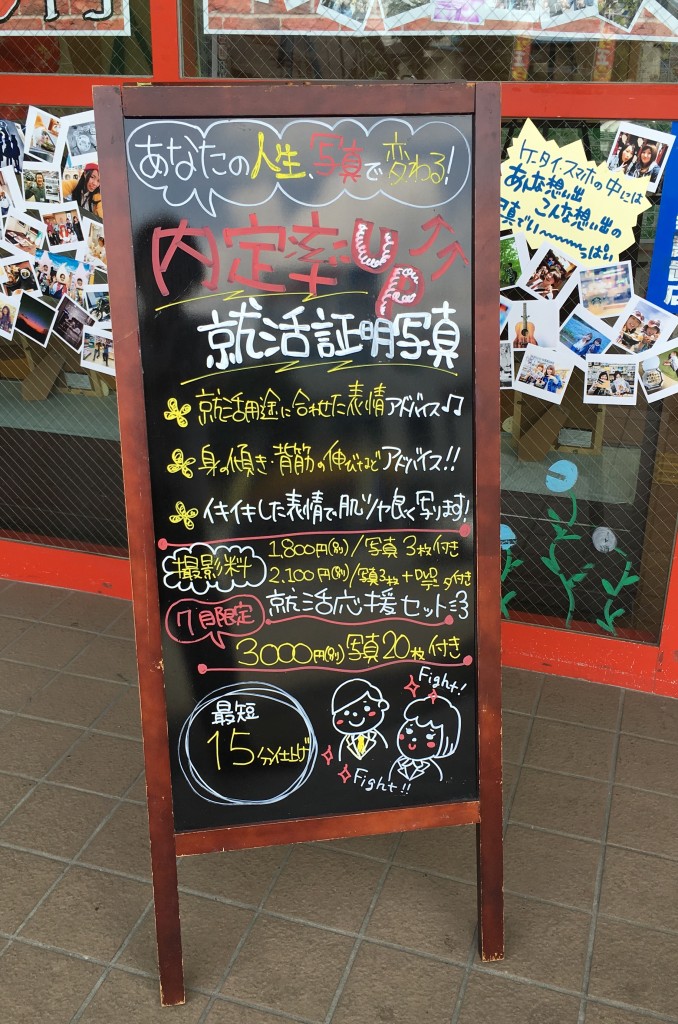 あなたの人生、写真で変わる!
内定率UP↑↑
就活証明写真
就活用途に合わせた表情アドバイス♫
身の傾き・背筋の伸びなどアドバイス!!
イキイキした表情で肌ツヤ良く写ります!
撮影料
1.800円(別)/写真3枚付き
2.100円(別)/写真3枚+DVDデータ付き
7月限定
就活応援セット
3000円(別)写真20枚付き
最短
15分仕上げ
Fight!
Fight!!
ケータイ・スマホの中には
あんな想い出
こんな想い出の
写真でい〜〜〜っぱい